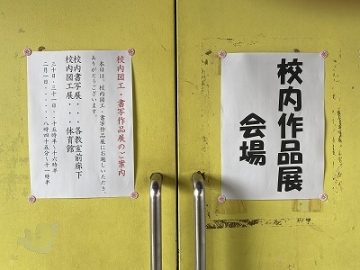 校内図工・書写作品展のご案内
本日は、校内図工・書写作品展にお越しいただき、
ありがとうございます。
校内書写展・・・各教室前廊下
校内図工展・・・・体育館
三十日・三十一日・・十五時半〜十六時半
二月一日・・・・・・八時四十五分〜十一時半
校内作品展
会場